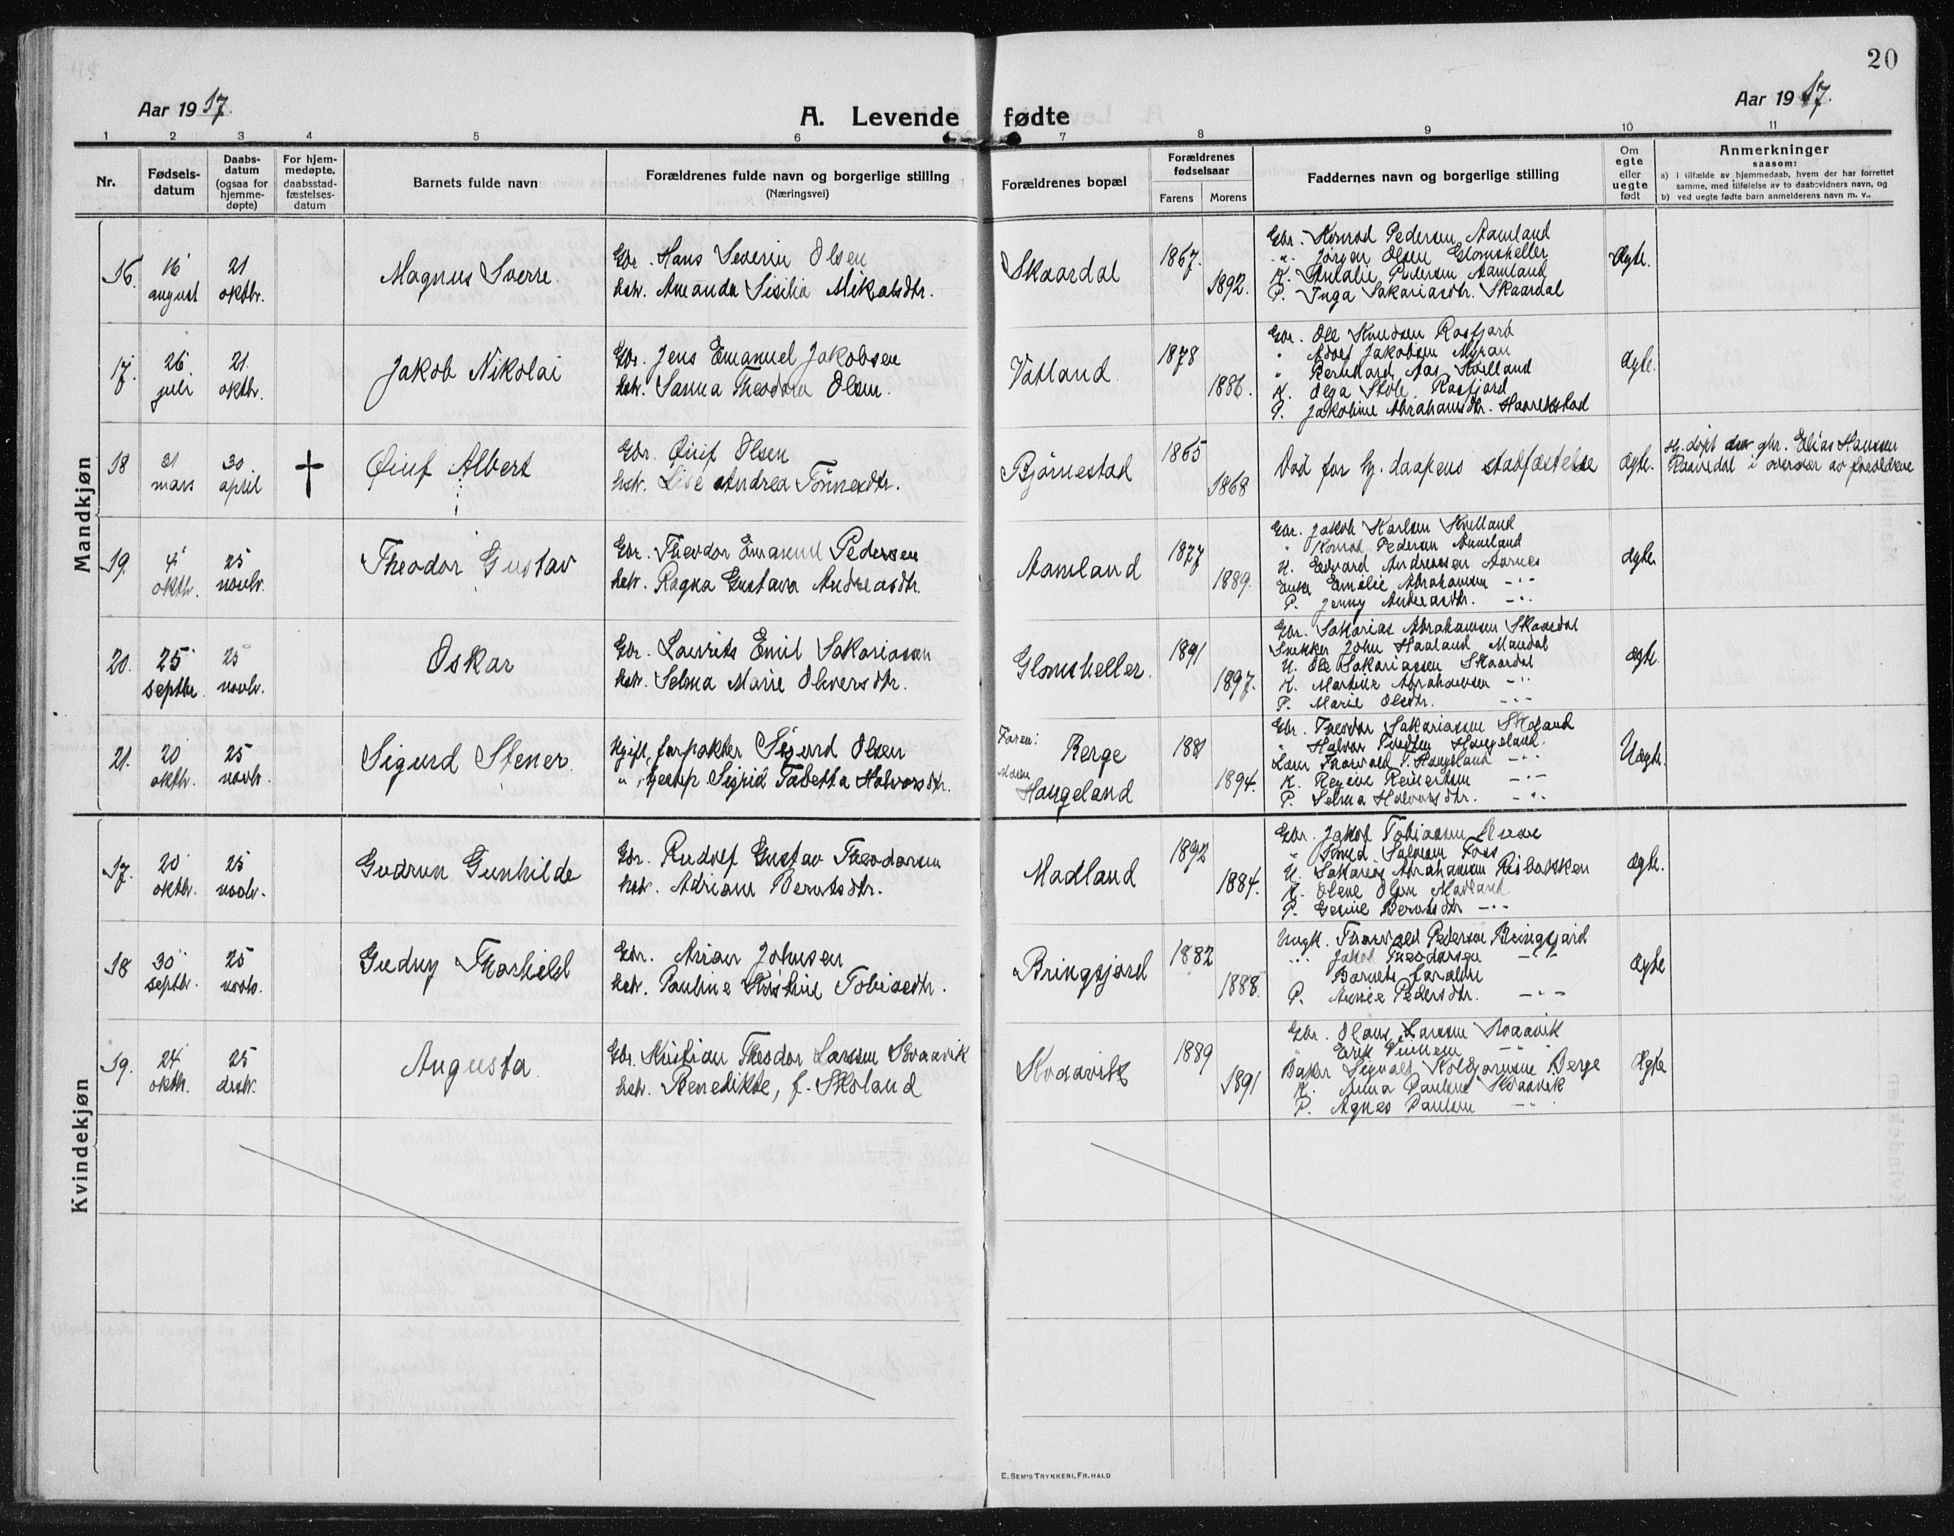 20
Aar 1917.
A. Levende fødte
Aar 1917.
1 2 3 4 5 6 7 8 9 10 11
Nr.
Fødselsdatum
Daabsdatum (ogsaa for hjemmedøpte)
For hjemmedøpte, daabsstadfæstelsesdatum
Barnets fulde navn
Forældrenes fulde navn og borgerlige stilling
(Næringsvei)
Forældrenes bopæl
Forældrenes fødselsaar
Farens Morens
Faddernes navn og borgerlige stilling
Om egte eller uegte født
Anmerkninger
saasom:
a) i tilfælde av hjemmedaab, hvem der har forrettet
samme, med tilføielse av to daabsvidners navn, og
b) ved uegte fødte barn anmelderens navn m. v..
Mandkjøn
16. 16 august 21 oktbr. Magnus Sverre.
Gbr. Hans Severin Olsen
hstr. Amanda Sisilia Mikalsdtr.
Skaardal 1867. 1892.
Gbr. Konrad Pedersen Aamland
" Jørgen Olsen Glomsheller
K. Amalie Pedersen Aamland
P. Inga Sakariasdtr. Skaardal
Ægte.
17. 26 juli 21. oktbr. Jakob Nikolai
Gbr. Jens Emanuel Jakobsen
hstr. Sanna Theodora Olsen.
Vatland. 1878 1886.
Gbr. Ole Knudsen Rosfjord
" Adolf Jakobsen Myran
" Bernhard Aas Kvelland
K. Olga Stole Rosfjord
P. Jakobine Abrahamsdtr. Haarikstad
Ægte.
18 31 mars 30. april † Øiuf Albert
Gbr. Øiuf Olsen
hstr. Live Andrea Tønnesdtr.
Bjørnestad 1865 1868
Død før hj.daapens stadfæstelse
Ægte.
Hj.døpt av gbr. Elias Hansen
Raavedal i overvær av forældrene
19. 4 oktbr. 25 novbr. Theodor Gustav
Gbr. Theodor Emanuel Pedersen
hstr. Ragna Gustava Andreasdtr.
Aamland 1877 1889.
Gbr. Jakob Karlsen Kvelland
" Konrad Pedersen Aamland
U. Edvard Andreassen Aarnes
Enke Emilie Abrahamsen -"-
P. Jenny Andreasdtr. -"-
Ægte
20. 25 septbr. 25 novbr. Oskar
Gbr. Laurits Emil Sakariassen
hstr. Selma Marie Olversdtr.
Glomsheller. 1891 1897.
Gbr. Sakarias Abrahamsen Skaardal
Snekker John Haaland Mandal
U. Ole Sakariassen Skaardal
K. Martine Abrahamsen -"-
P. Marie Olsdtr. -"-
ægte.
21. 20 oktbr. 25 novbr. Sigurd Stener.
Ugift, forpakter Sigurd Olsen
" , tjenep Sigrid Tabetta Halvorsdtr.
Faren: Berge
Moren Haugeland
1881 1894.
Gbr. Theodor Sakariassen Skoland
" Halvor Tvedten Haugeland.
Lærer Thorvald T. Haugeland -"-
K. Regine Reinertsen -"-
P. Selma Halvorsdtr. -"-
Uægte.
Kvindekjøn
17. 20 oktbr. 25 novbr. Gudrun Gunhilde
Gbr. Rudolf Gustav Theodorsen
hstr. Adriane Berntsdtr.
Madland 1892 1884.
Gbr. Jakob Tobiassen
" Knud Salvesen Foss
U. Sakarias Abrahamsen Risbakken
K. Olene Olsen Madland
P. Gesine Berntsdtr -"-
Ægte.
18 30 septbr. 25 novbr. Gudny Thorhild
Gbr. Johnsen
hstr. Pauline Kristine Tobiasdtr.
Bringsjord 1882 1888.
Ungk. Thorvald Pedersen Bringsjord
" Jakob Theodorsen -"-
Barnets forældre
P. Annie Pedersdtr. -"-
Ægte
19. 24 oktbr. 25 desbr. Augusta.
Gbr. Kristian Theodor Larssen Kvaavik
hstr. Benedikte, f. Skoland
Kvaavik 1889 1891
Gbr. Olaus Larssen Kvaavik
" Erik -"-
Baker Sigvald Kolbjørnsen Berge
K. Anna Paulsen Kvaavik
P. Agnes Paulsen -"-
Ægte
E. SEM'S TRYKKERI, FR. HALD